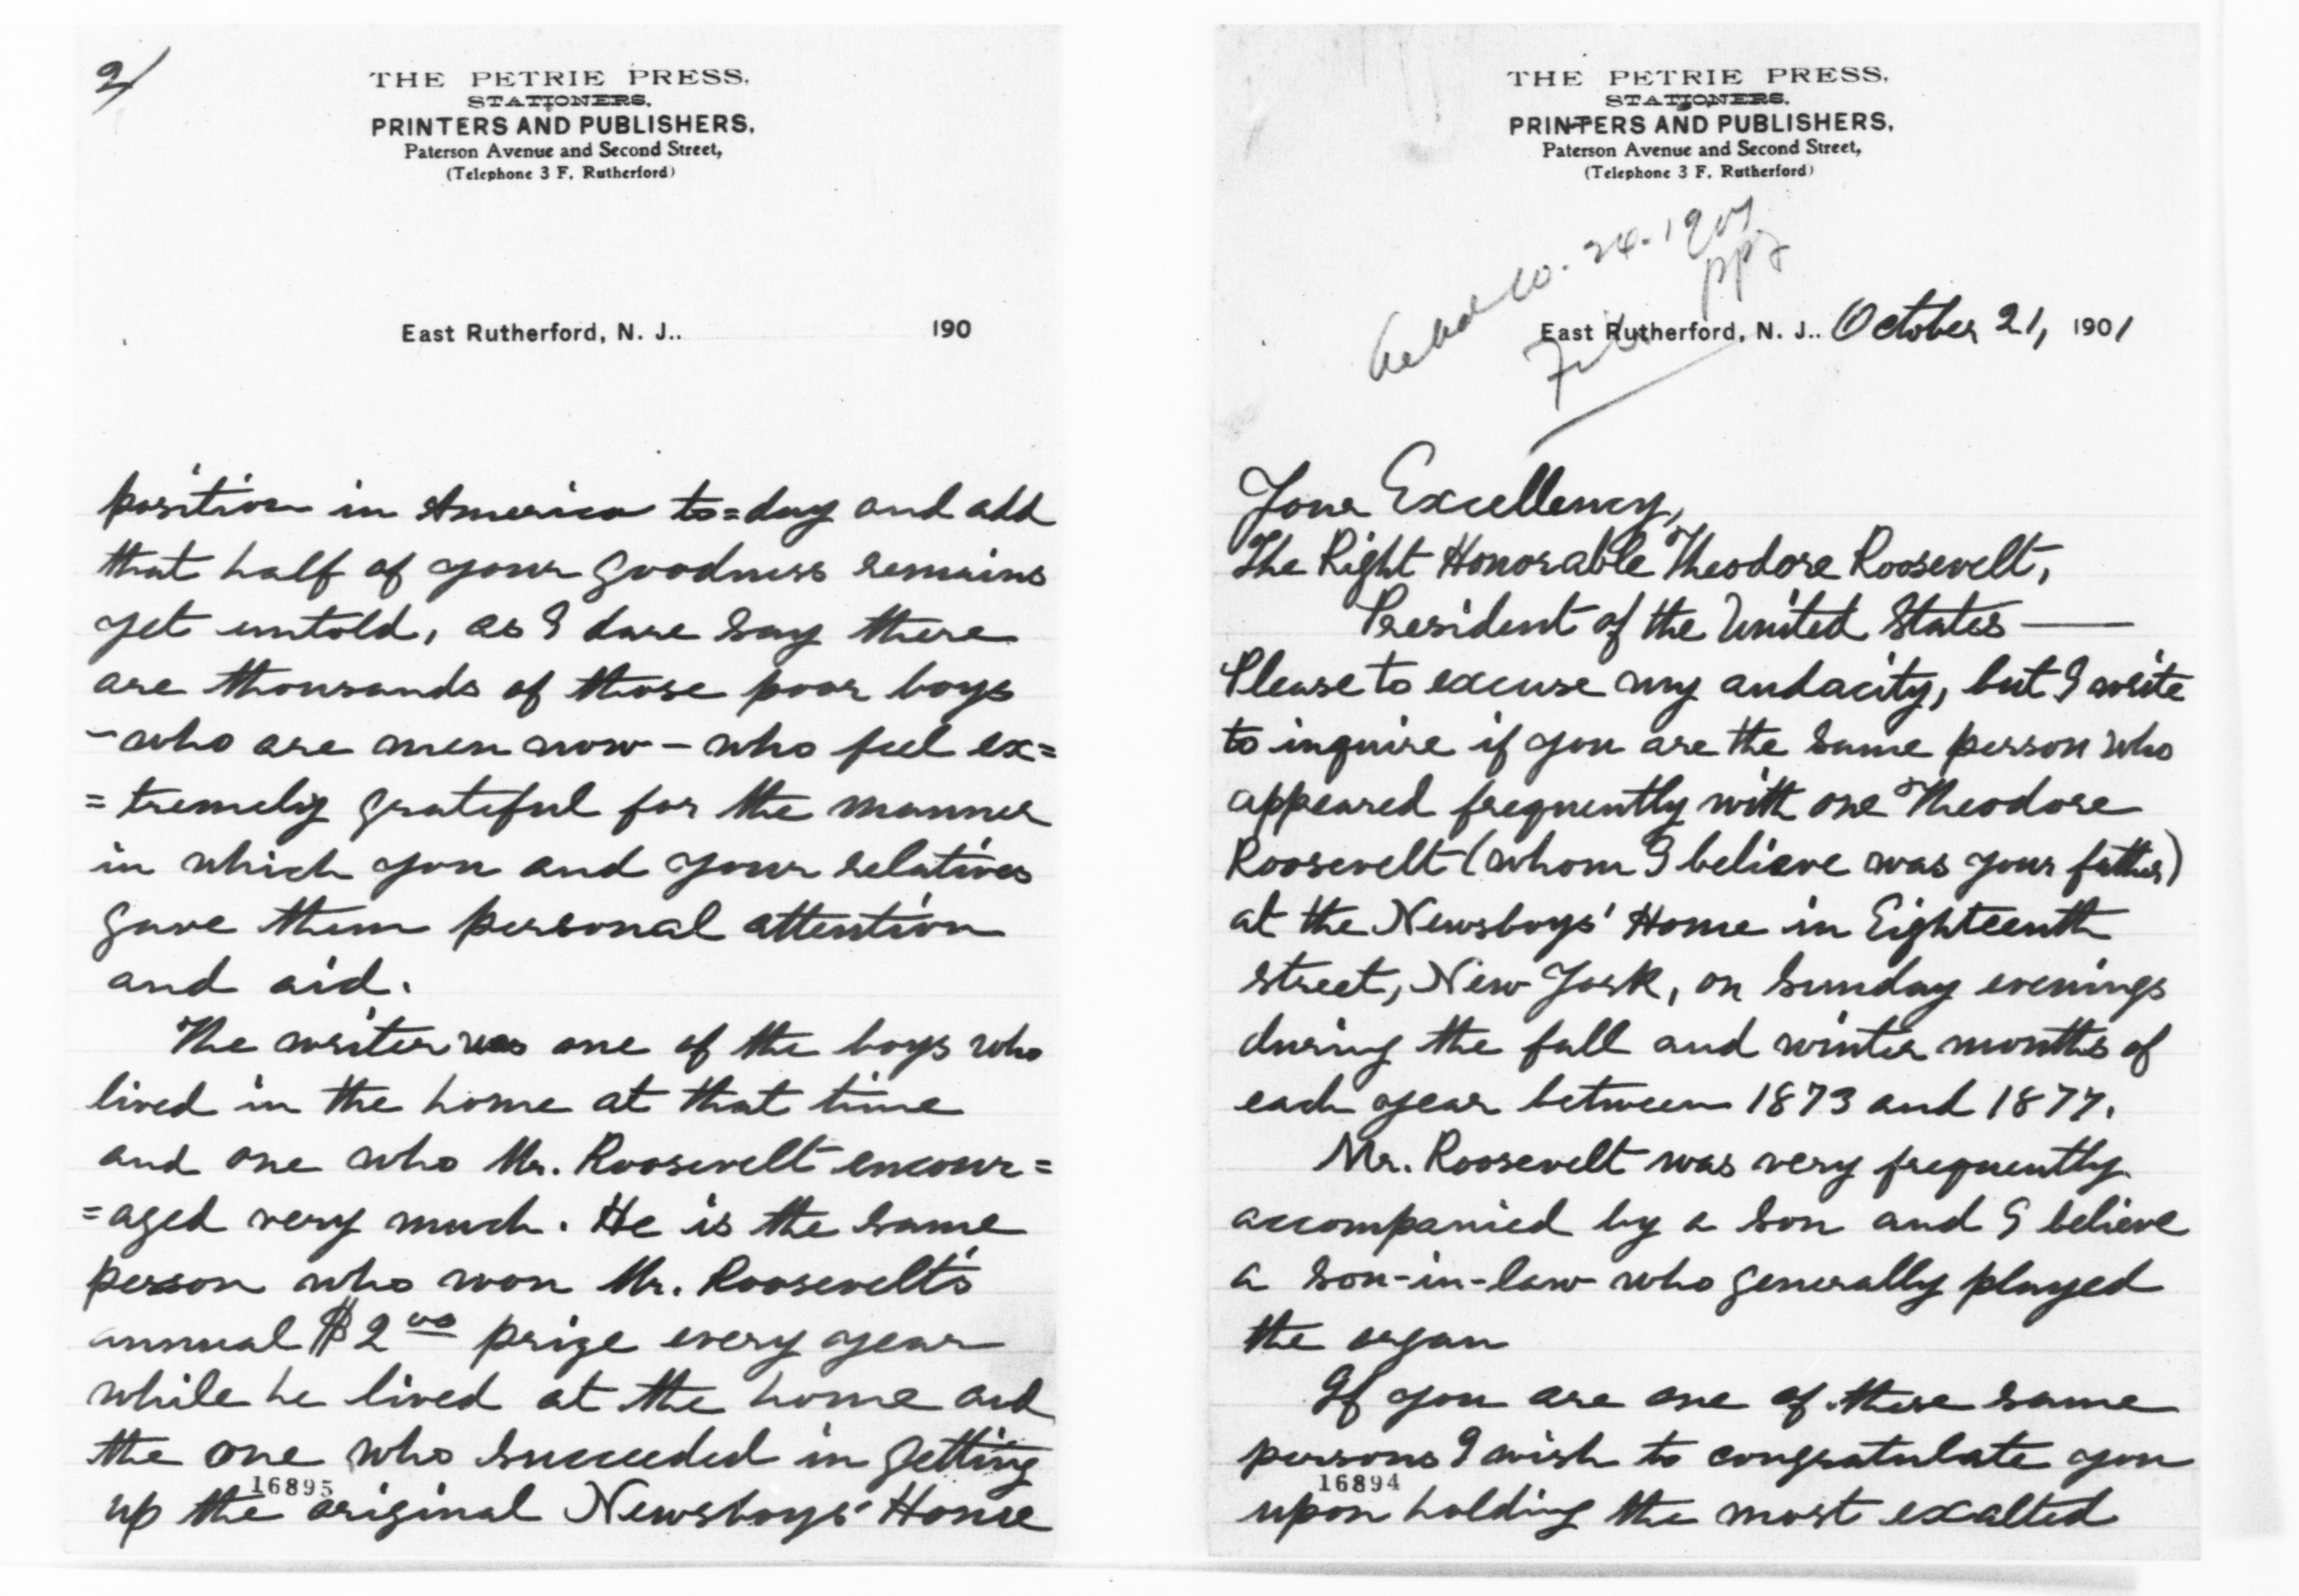 THE PETRIE PRESS,
STATIONERS,
PRINTERS AND PUBLISHERS,
Paterson Avenue and Second Street,
(Telephone 3 F, Rutherford)
Ackd 10-24-1901
File
East Rutherford, N. J.. October 21, 1901
Your Excellency,
The Right Honorable Theodore Roosevelt,
President of the United States —
Please to excuse my audacity, but I write
to inquire if you are the same person who
appeared frequently with one Theodore
Roosevelt (whom I believe was your father)
at the Newsboys' Home in Eighteenth
street, New York, on Sunday evenings
during the fall and winter months of
each year between 1873 and 1877.
Mr. Roosevelt was very frequently
accompanied by a son and I believe
a son-in-law who generally played
the organ
If you are one of these same
persons I wish to congratulate you
16894
upon holding the most exalted
2/
THE PETRIE PRESS,
STATIONERS,
PRINTERS AND PUBLISHERS,
Paterson Avenue and Second Street,
(Telephone 3 F, Rutherford)
East Rutherford, N. J.. 190
position in America to=day and add
that half of your goodness remains
yet untold, as I dare say there
are thousands of those poor boys
-who are men now-who feel ex=
=tremely grateful for the manner
in which you and your relatives
gave them personal attention
and aid.
The writer was one of the boys who
lived in the home at that time
and one who Mr. Roosevelt encour=
=aged very much. He is the same
person who won Mr. Roosevelt's
annual $2 00 prize every year
while he lived at the home and
the one who succeeded in getting
16895
up the original Newsboys' Home